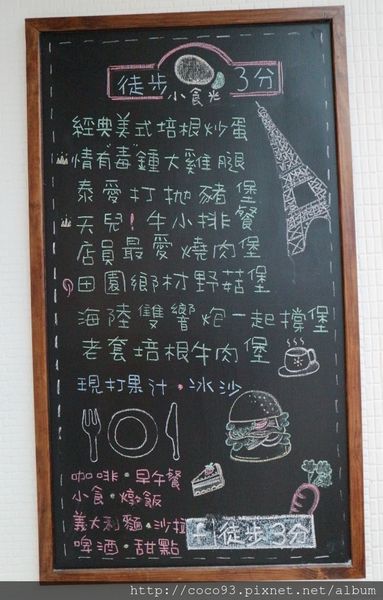 徒步 3分
小食光
經典美式培根炒蛋
情有"毒"鍾大雞腿
泰愛打拋豬堡
天兒!牛小排餐
店員最愛燒肉堡
田園鄉村野菇堡
海陸雙響炮一起撐堡
老套培根牛肉堡
現打果汁・冰沙
咖啡・早午餐
小食・燉飯
義大利麵・沙拉
啤酒・甜點
徒步3分
http://coco93.pixnet.net/album